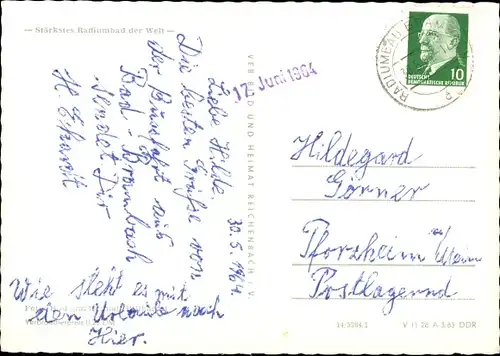 - Stärkstes Radiumbad der Welt -
RADIUMBAD
DEUTSCHE
DEMOKRATISCHE REPUBLIK
10
17. Juni 1964
30. 5. 1964.
Liebe Hilde.
Die besten Grüße von
der Busfahrt aus
Bad-Brambach
sendet Dir
H.
Wie steht es mit
den Urlaub nach
Hier.
UND HEIMAT REICHENBACH I. V.
Hildegard
Görner
Pforzheim
Postlagernd
V 11 28 A 3/63 DDR